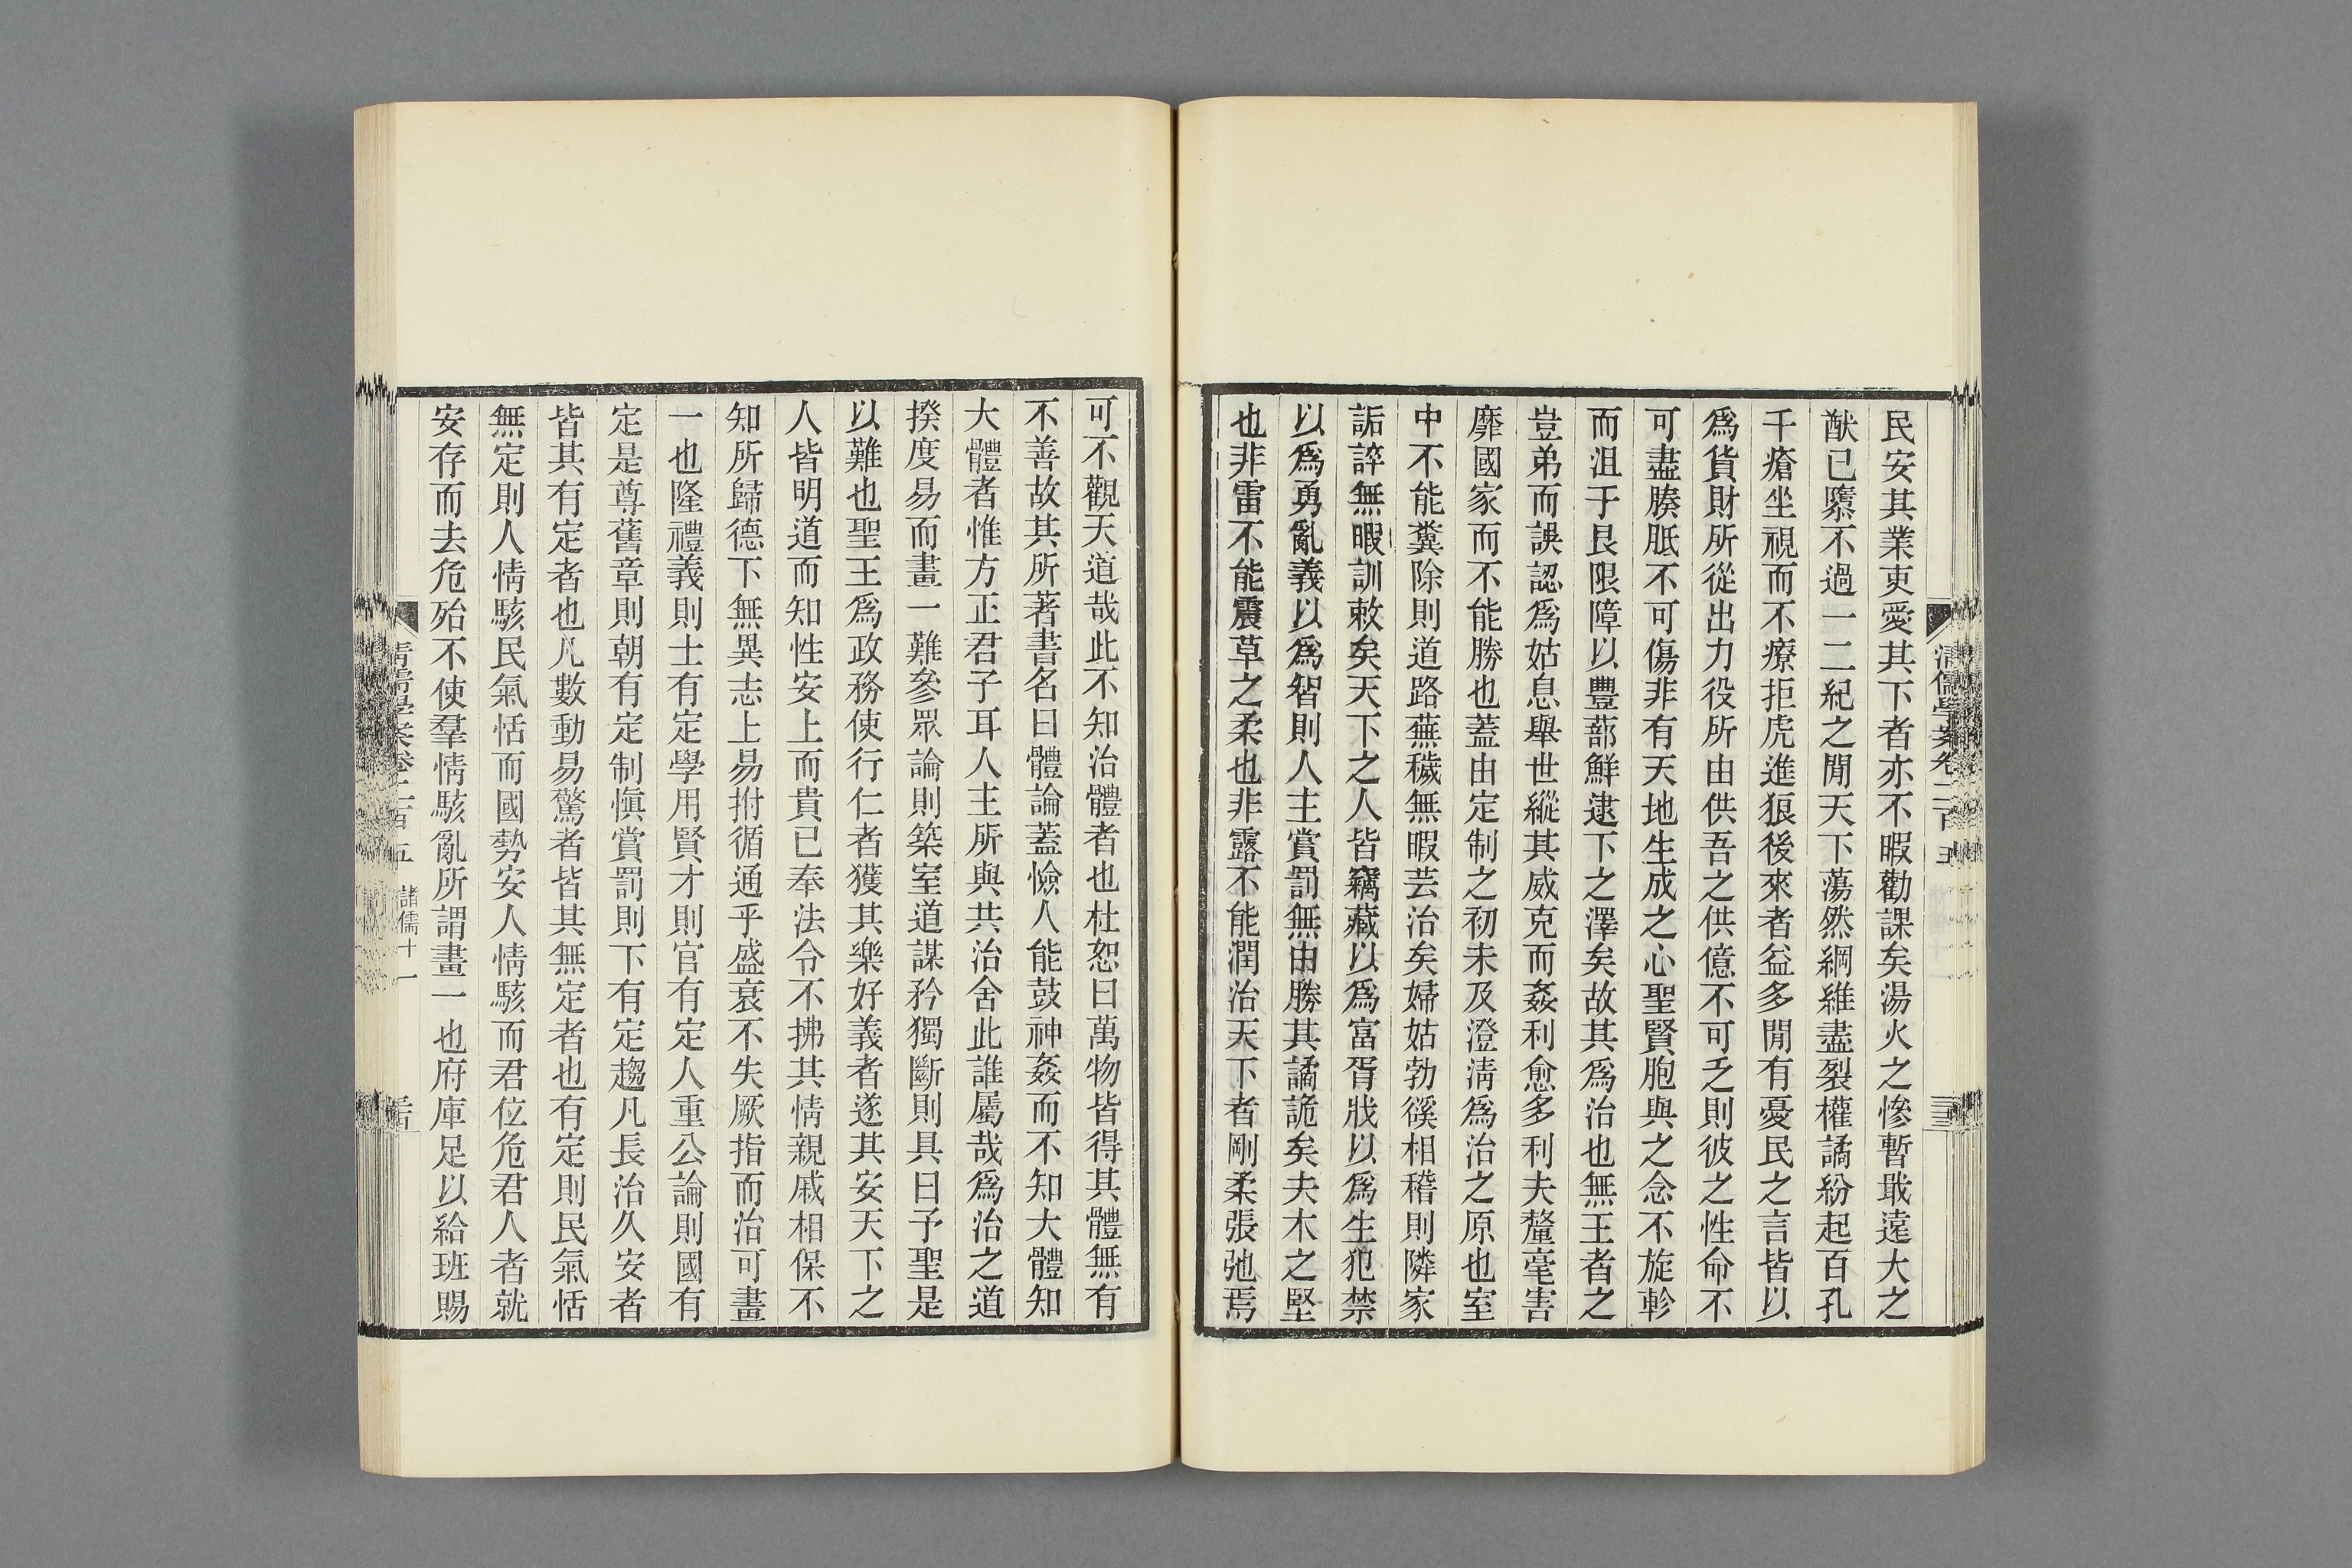 民安其業吏愛其下者亦不暇勸課矣湯火之慘暫戢遠大之
猷已隳不過一二紀之閒天下蕩然綱維盡裂權譎紛起百孔
千瘡坐視而不療拒虎進狼後來者益多閒有憂民之言皆以
爲貨財所從出力役所由供吾之供億不可乏則彼之性命不
可盡腠胝不可傷非有天地生成之心聖賢胞與之念不旋軫
而沮于艮限障以豐蔀鮮逮下之澤矣故其爲治也無王者之
豈弟而誤認爲姑息舉世縱其威克而姦利愈多利夫釐毫害
靡國家而不能勝也蓋由定制之初未及澄淸爲治之原也室
中不能糞除則道路蕪穢無暇芸治矣婦姑勃徯相稽則隣家
詬誶無暇訓敕矣天下之人皆竊藏以爲富胥戕以爲生犯禁
以爲勇亂義以爲智則人主賞罰無由勝其譎詭矣夫木之堅
也非雷不能震草之柔也非露不能潤治天下者剛柔張弛焉
清儒學案卷二百五
可不觀天道哉此不知治體者也杜恕曰萬物皆得其體無有
不善故其所著書名曰體論蓋憸人能鼓神姦而不知大體知
大體者惟方正君子耳人主所與共治舍此誰屬哉爲治之道
揆度易而畫一難參眾論則築室道謀矜獨斷則具曰予聖是
以難也聖王爲政務使行仁者獲其樂好義者遂其安天下之
人皆明道而知性安上而貴已奉法令不拂其情親戚相保不
知所歸德下無異志上易拊循通乎盛衰不失厥指而治可畫
一也隆禮義則士有定學用賢才則官有定人重公論則國有
定是尊舊章則朝有定制愼賞罰則下有定趨凡長治久安者
皆其有定者也凡數動易驚者皆其無定者也有定則民氣恬
無定則人情駭民氣恬而國勢安人情駭而君位危君人者就
安存而去危殆不使羣情駭亂所謂畫一也府庫足以給班賜
清儒學案卷二百五 諸儒十一